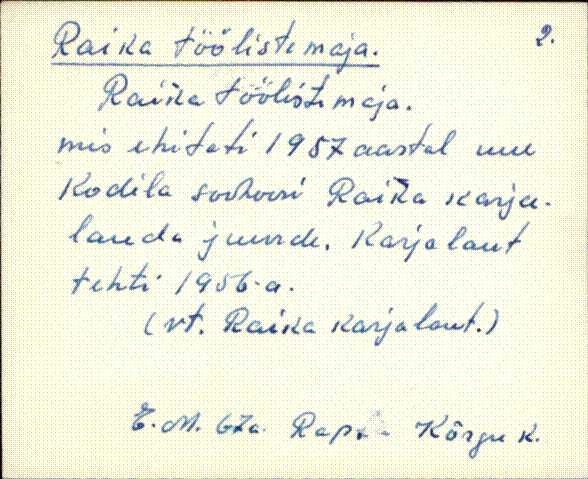 2.
Raika töölistemaja.
Raika töölistemaja.
mis ehitati 1957 aastal uue
Kodila sovhoosi Raika karja-
lauda juurde. Karjalaut
tehti 1956-a.
(vt. Raika karjalaut.)
E.M. 67a. Rapla Kõrgu k.